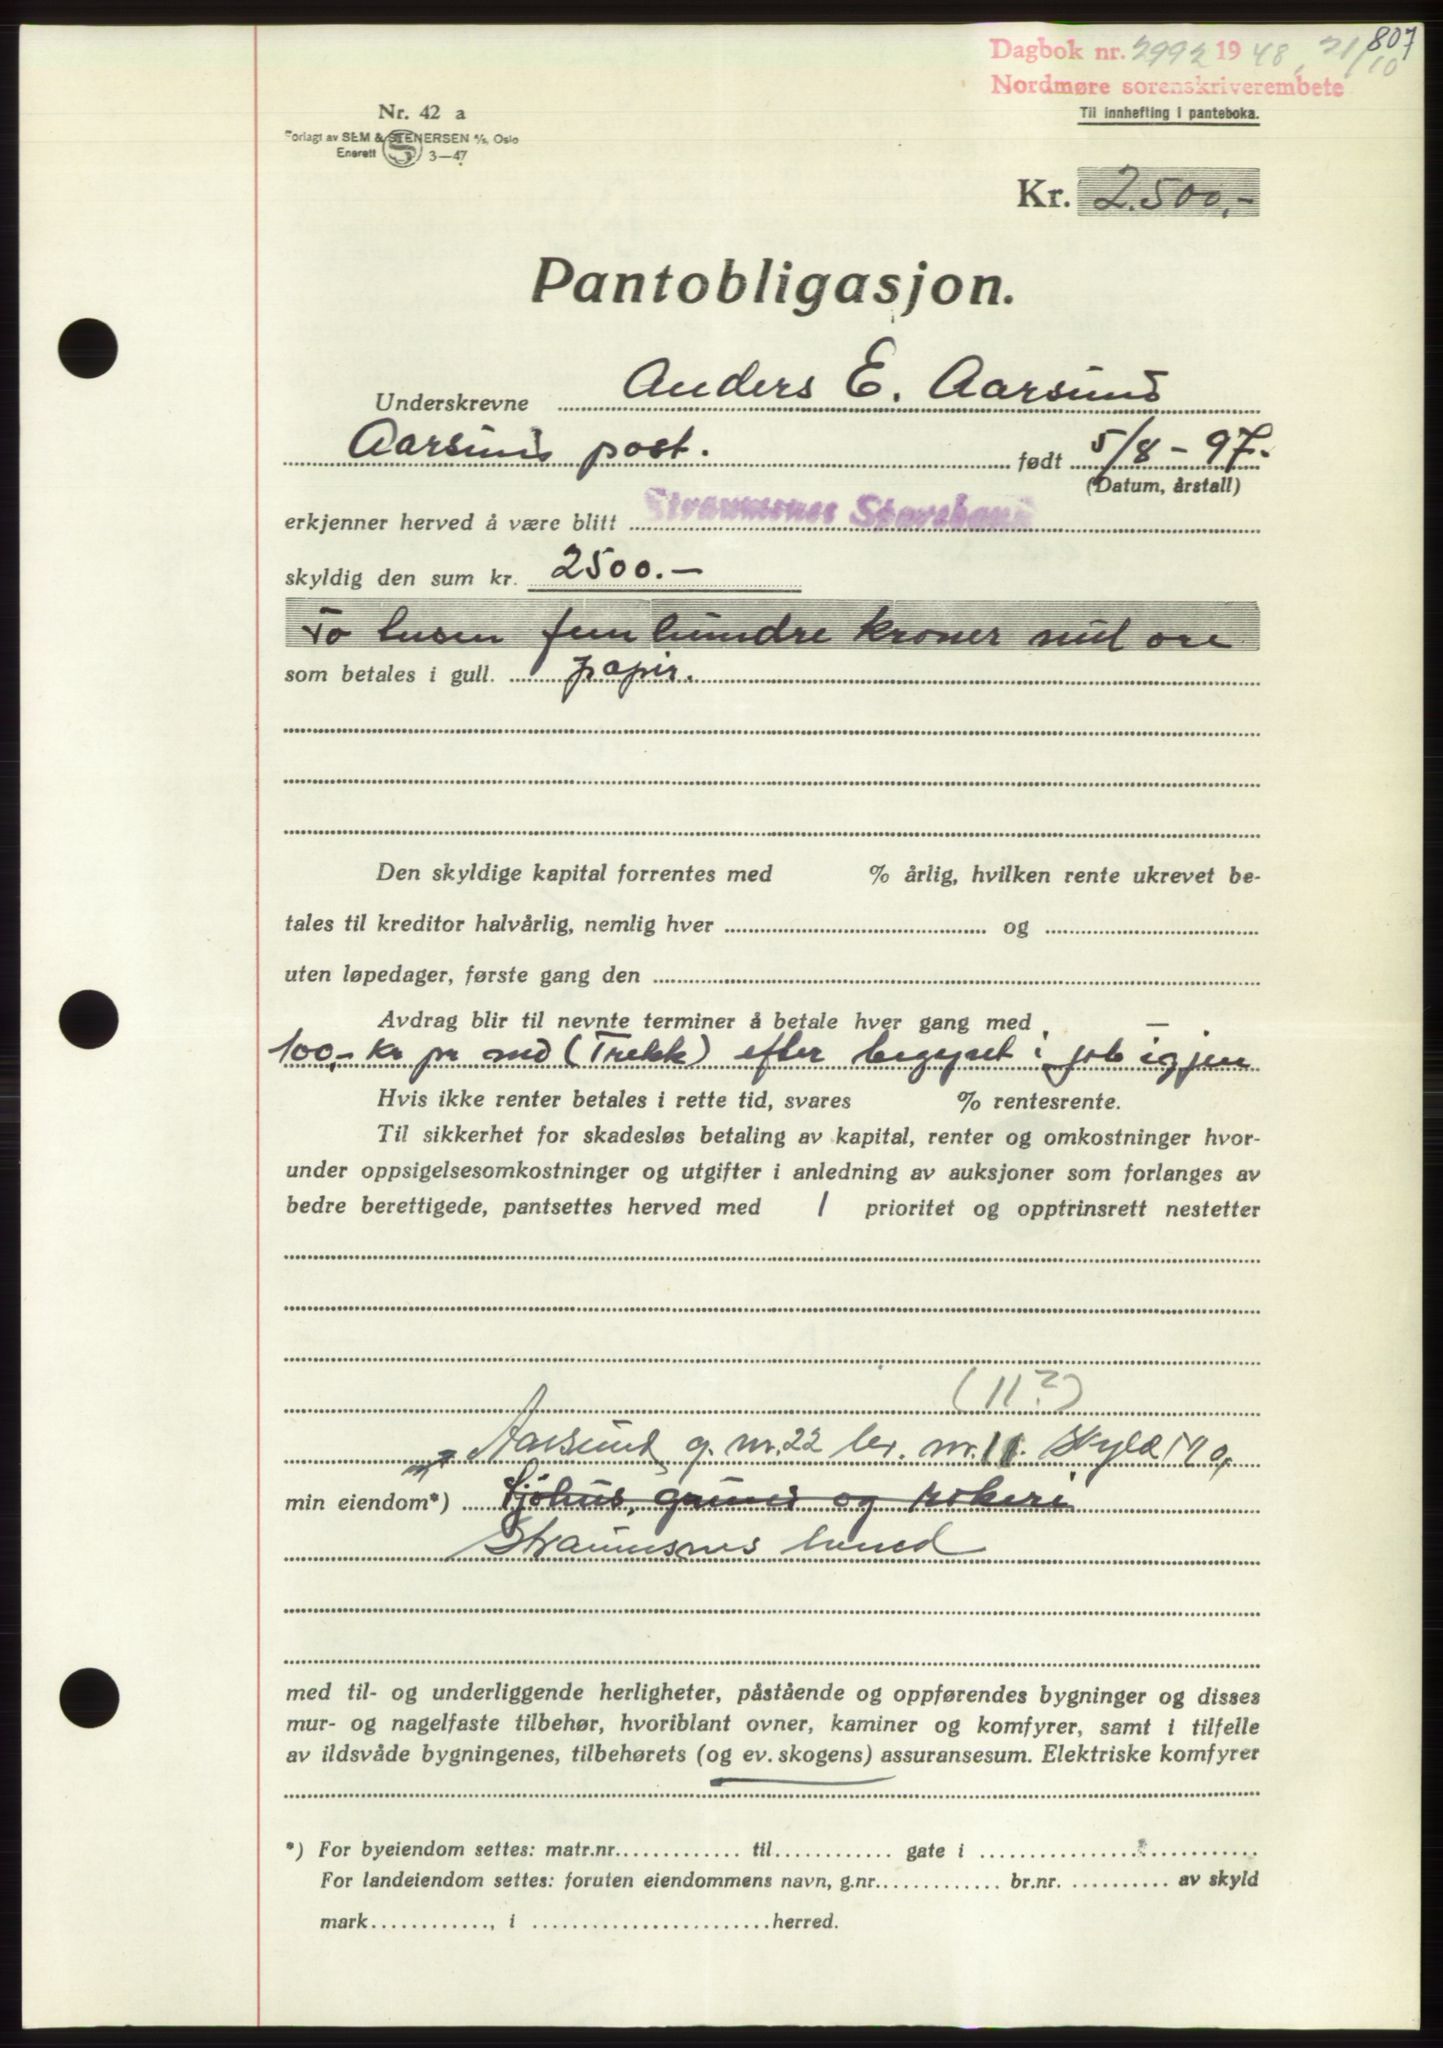 807
Dagbok nr. 2992 1948, 21/10
Nordmøre sorenskriverembete
Til innhefting i panteboka.
Nr. 42 a
Forlagt av SEM & STENERSEN A/S, Oslo
Enerett S 3—47
Kr. 2.500,-
Pantobligasjon.
Underskrevne Anders E. Aarsund
Aarsund post. født 5/8 - 97.
(Datum, årstall)
erkjenner herved å være blitt Straumsnes Sparebank
skyldig den sum kr. 2500.—
To tusen fem hundre kroner null øre
som betales i gull. papir.
Den skyldige kapital forrentes med % årlig, hvilken rente ukrevet be-
tales til kreditor halvårlig, nemlig hver og
uten løpedager, første gang den
Avdrag blir til nevnte terminer å betale hver gang med
100,- kr pr md (Trekk) efter begynt i job igjen
Hvis ikke renter betales i rette tid, svares % rentesrente.
Til sikkerhet for skadesløs betaling av kapital, renter og omkostninger hvor-
under oppsigelsesomkostninger og utgifter i anledning av auksjoner som forlanges av
bedre berettigede, pantsettes herved med 1 prioritet og opptrinsrett nestetter
(11?)
Aarsund g. nr. 22 br. nr. 11. Skyld
min eiendom*) Sjøhus, grunn og
Straumsnes herred
med til- og underliggende herligheter, påstående og oppførendes bygninger og disses
mur- og nagelfaste tilbehør, hvoriblant ovner, kaminer og komfyrer, samt i tilfelle
av ildsvåde bygningenes, tilbehørets (og ev. skogens) assuransesum. Elektriske komfyrer
*) For byeiendom settes: matr.nr. til gate i
For landeiendom settes: foruten eiendommens navn, g.nr. br.nr. av skyld
mark , i herred.